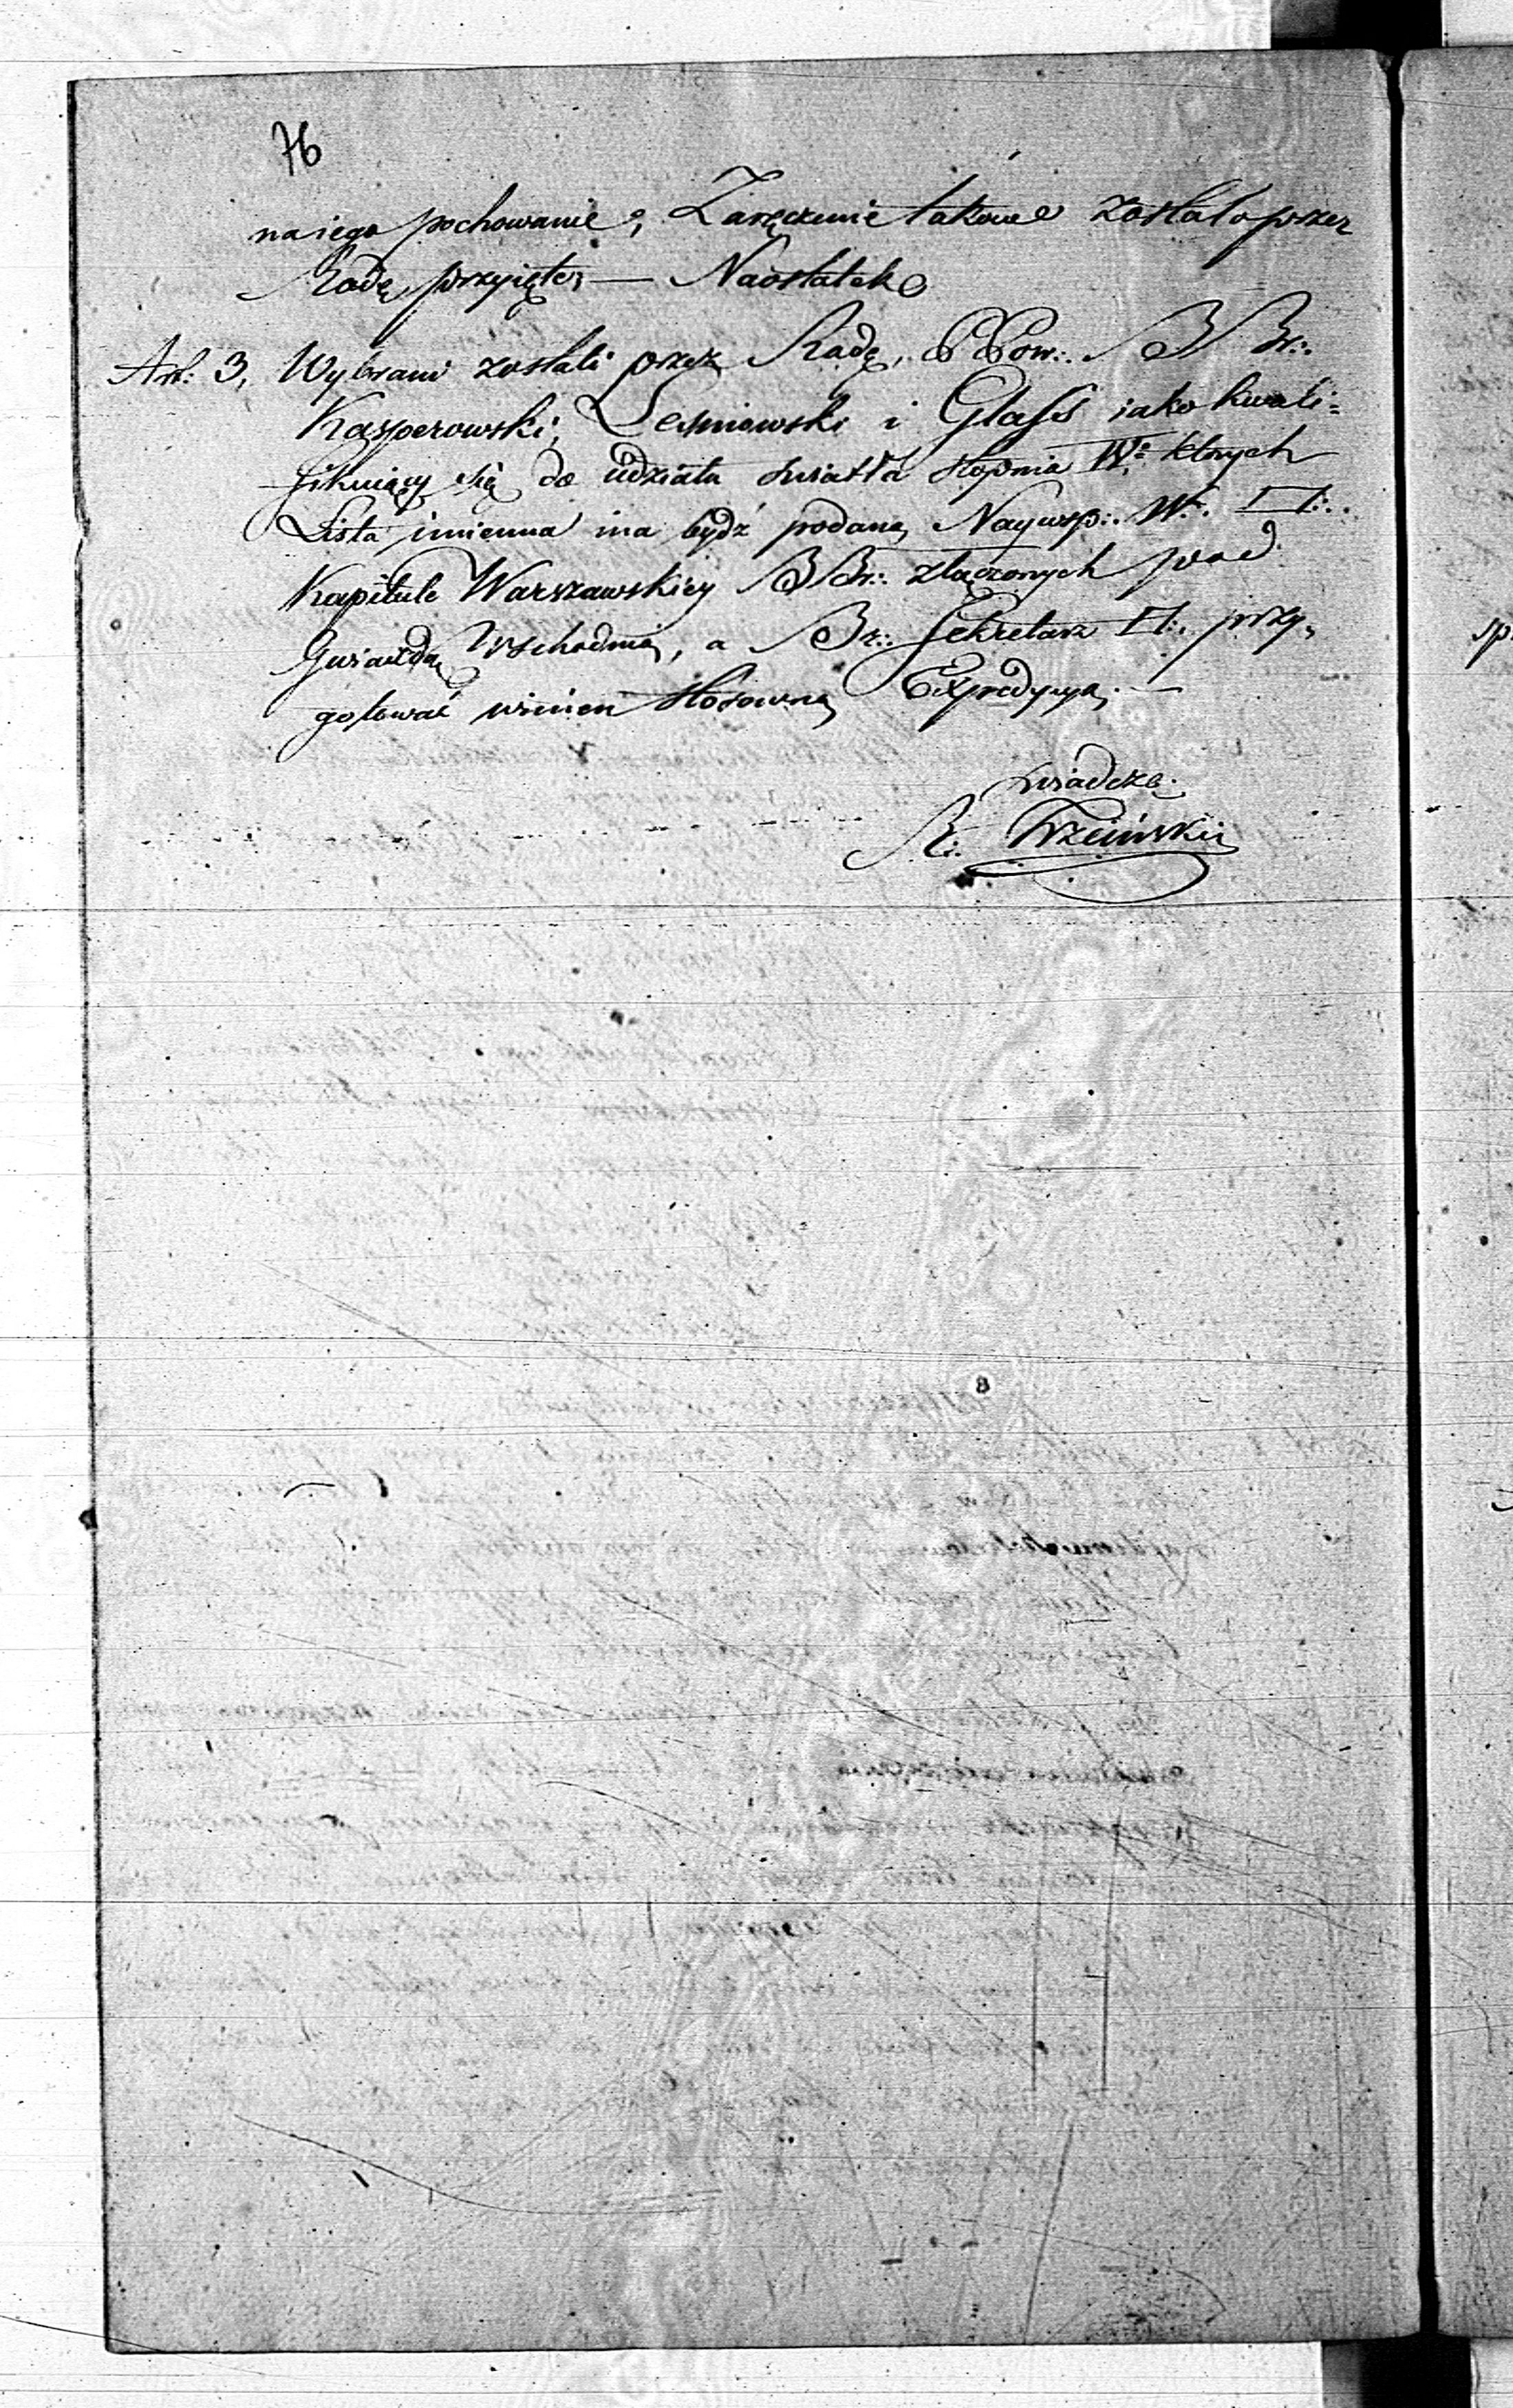 76
na iego pochowanie, Zaręczenie takowe zostało przez
Radę przyięte; — Naostatek
Art: 3, Wybrani zostali przez Radę, PPow∴ BBr∴
Kasperowski, Leśniewski i Glass iako kwali=
fikuiący się do udziału światła stopnia IVo których
Lista imienna ma bydź podaną Naywsp∴ W∴ □∴
Kapitule Warszawskiey BBr∴ złączonych pod
Gwiazdą Wschodnią, a Br∴ Sekretarz □∴ przy,
gotować winien stosowną Expedycyą. —
świadczę.